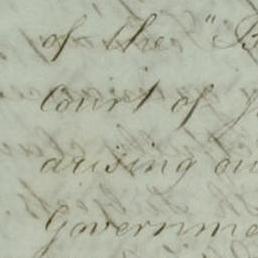 of the "
Court of
arising ou
Governme